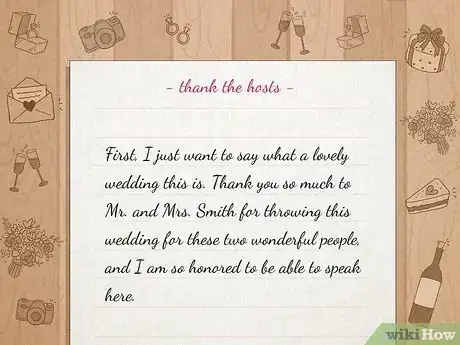 - thank the hosts -
First, I just want to say what a lovely
wedding this is. Thank you so much to
Mr. and Mrs. Smith for throwing this
wedding for these two wonderful people,
and I am so honored to be able to speak
here.
wikiHow